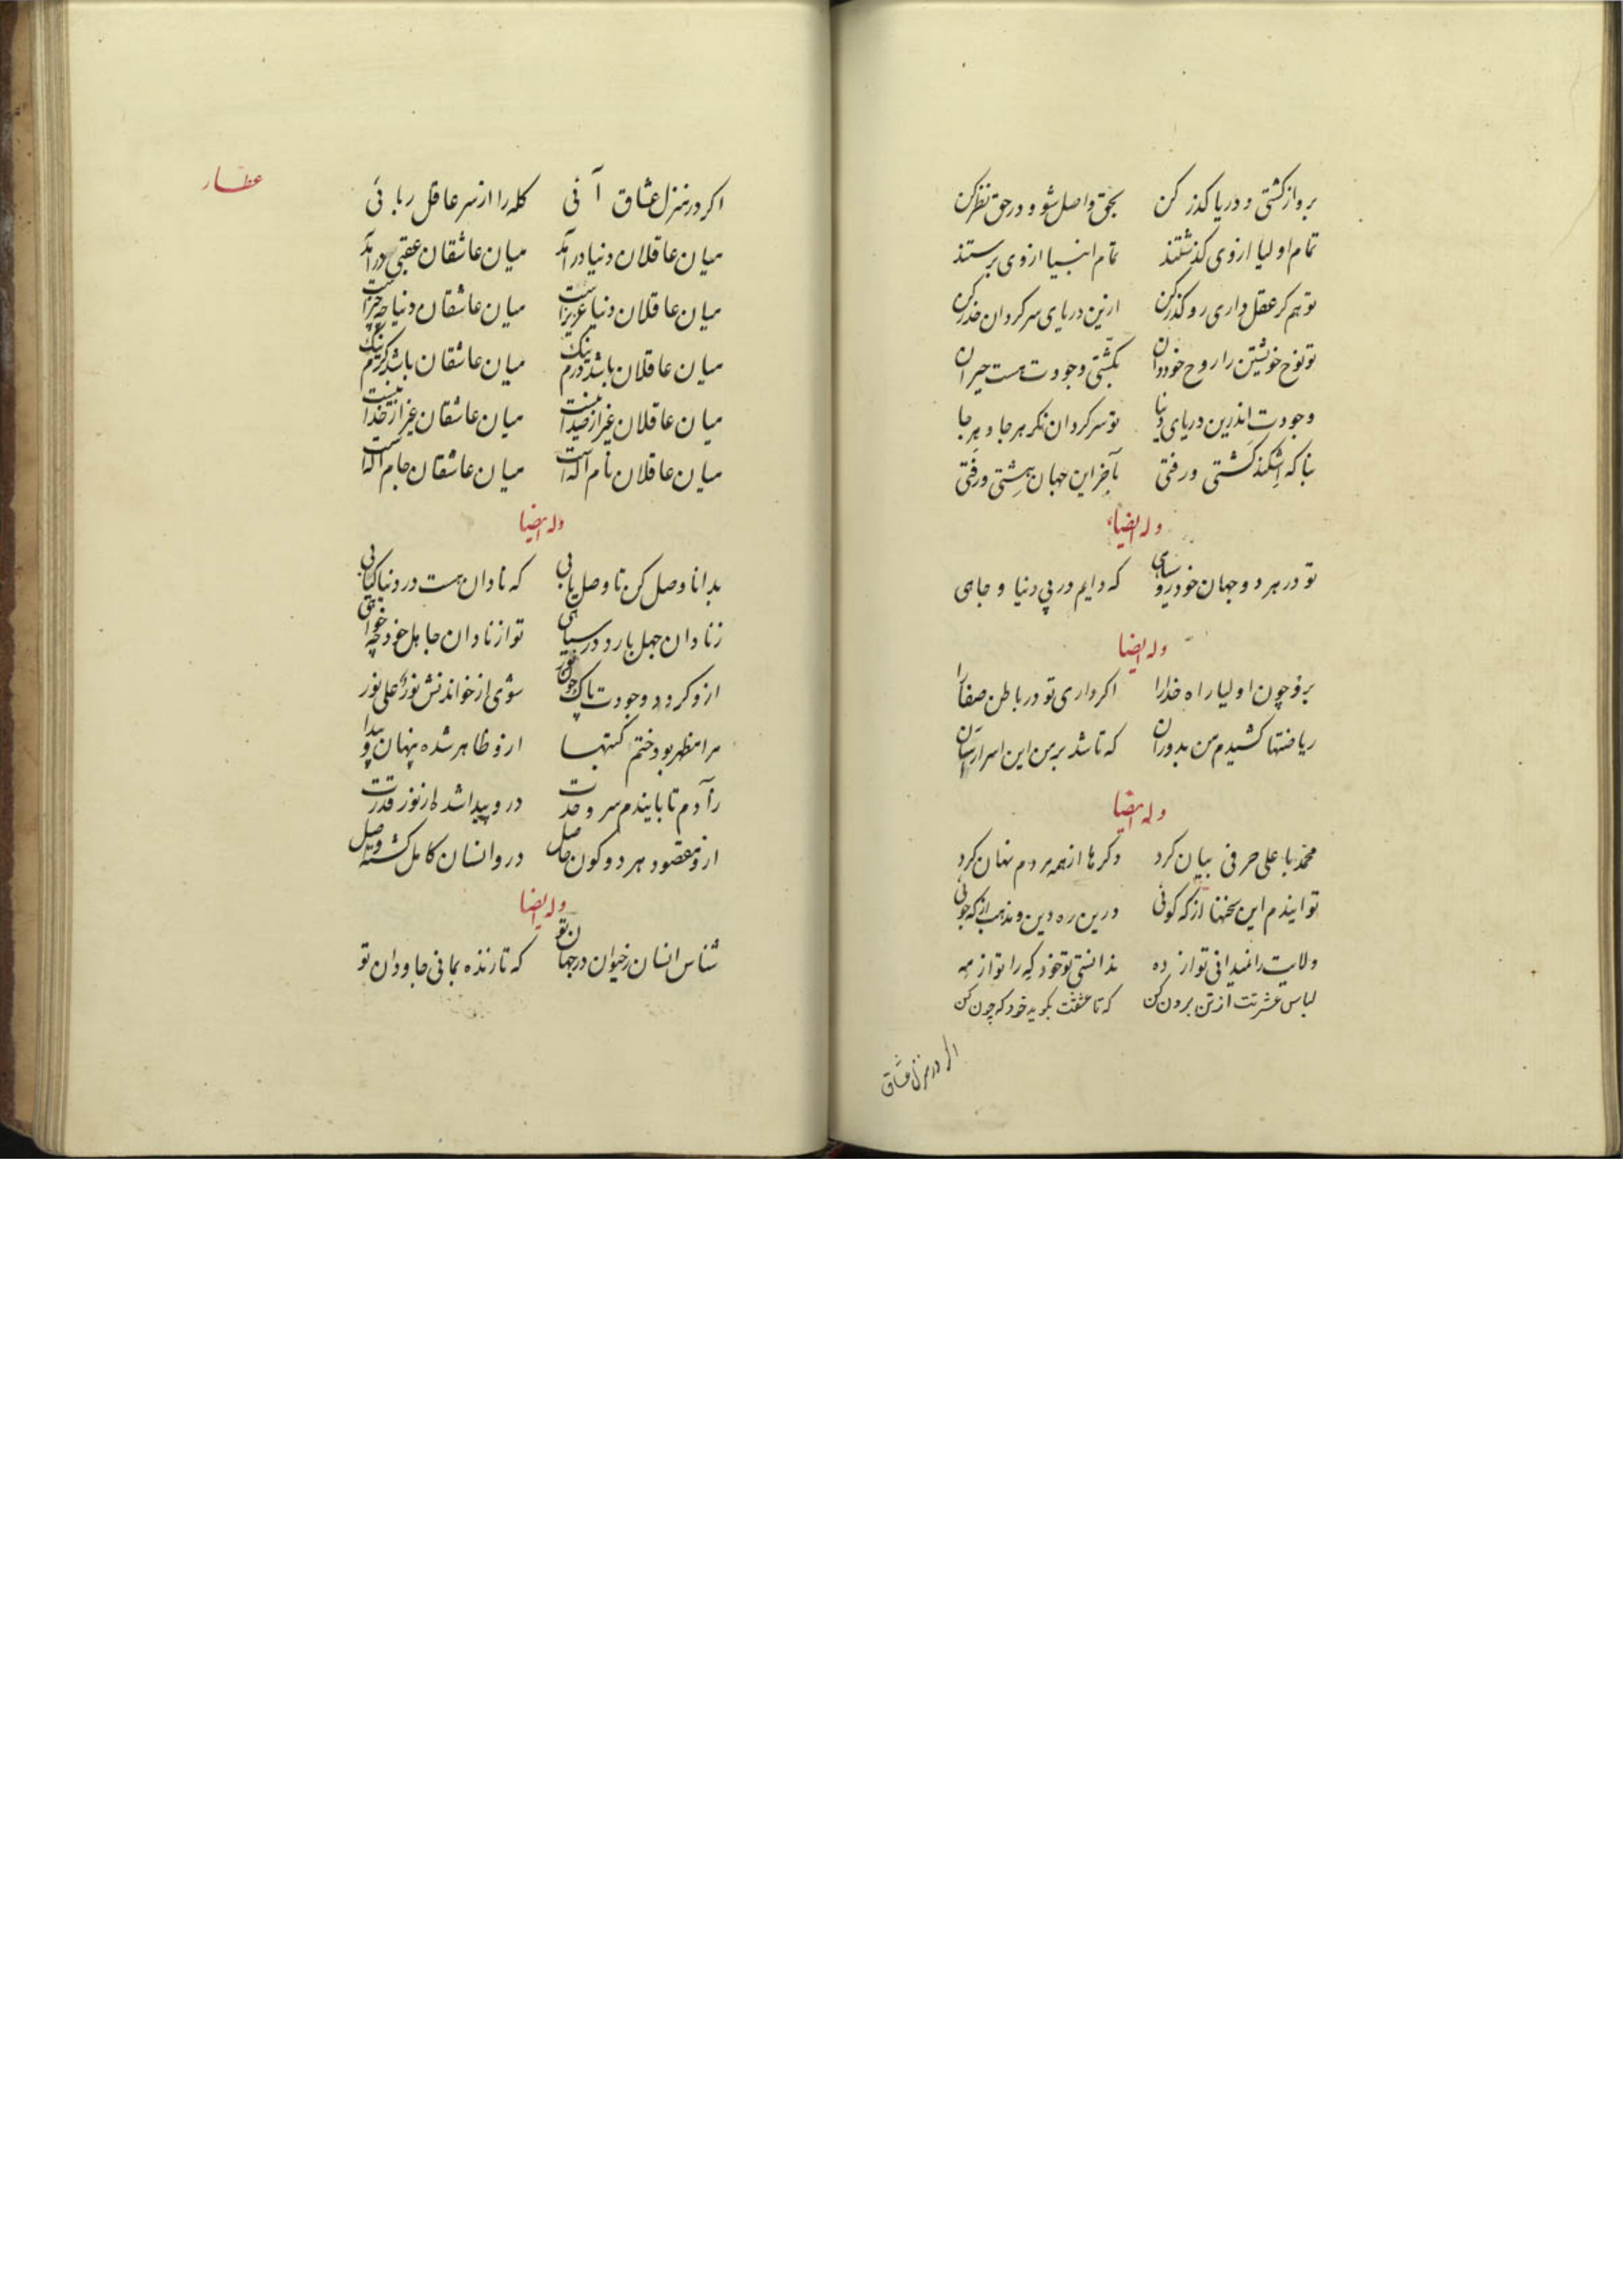 برو از کشتی و دریا کذر کن بحق واصل شو و در حق نظر کن
تمام اولیا از وی کذشتند تمام انبیا از وی برستند
تو هم کر عقل داری رو کذر کن ازین دریای سرکردان حذر کن
تو نوح خویشتن را روح خود دان بکشتی وجودت مست حیران
وجودت اندرین دریای دنیا تو سرکردان نکر هر جا و بیجا
بناکه اشکند کشتی و رفتی بآخر این جهان بهشتی و رفتی
وله ایضا
تو در هر دو جهان خود روسیاهی که دایم در پی دنیا و جاهی
وله ایضا
برو چون اولیا راه خدا را اکر داری تو در باطن صفا را
ریاضتها کشیدم من بدوران که تا شد بر من این اسرار آسان
وله ایضا
محمد با علی حرفی بیان کرد دکرها از همه مردم نهان کرد
تو ایندم این سخنها از که کوئی درین ره دین و مذهب از که جوئی
ولایت را نمیدانی تو از ده ندانستی تو خود که را تو از مه
لباس عشرتت از تن برون کن که تا عشقت بکوید خود که چون کن
اکر در منزل عشاق
عطار
اکر در منزل عشاق آئی کله را از سر عاقل ربائی
میان عاقلان دنیا درآمد میان عاشقان عقبی درآمد
میان عاقلان دنیا عزیزست میان عاشقان دنیا چه چیزست
میان عاقلان باشد درم نیک میان عاشقان باشد کرم نیک
میان عاقلان غیر از صدا نیست میان عاشقان غیر از خدا نیست
میان عاقلان نام آلهست میان عاشقان جام آلهست
وله ایضا
بدانا وصل کن تا وصل یابی که نادان هست در دنیا کبابی
ز نادان جهل بارد در سیاهی تو از نادان جاهل خود چه خواهی
ازو کردد وجودت پاک چون نور شوی از خواندنش نور علی نور
مرا مظهر بود ختم کتبها ازو ظاهر شده پنهان و پیدا
ز آدم تا بایندم سر وحدت درو پیدا شده از نور قدرت
ازو مقصود هر دو کون حاصل درو انسان کامل کشته واصل
وله ایضا
شناس انسان ز حیوان در جهان تو که تا زنده بمانی جاودان تو